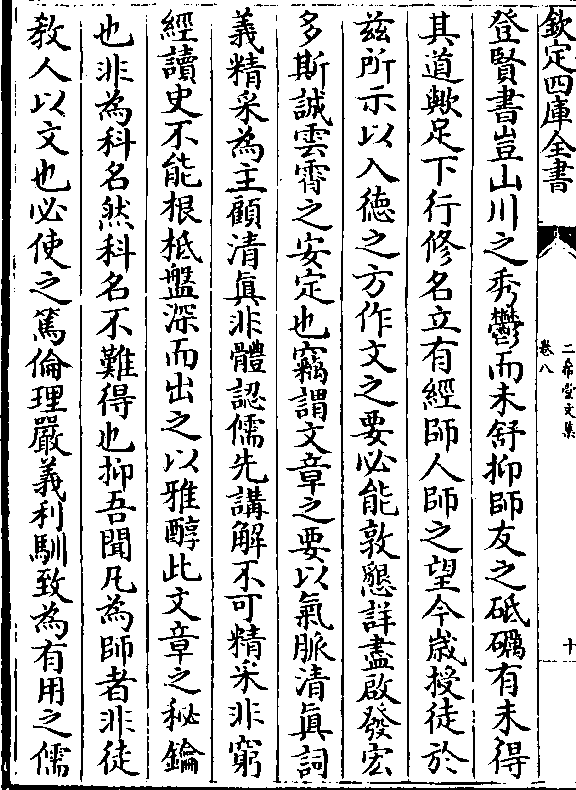 欽定四庫全書
二希堂文集
卷八
十
登賢書豈山川之秀鬱而未舒抑師友之砥礪有未得
其道歟足下行修名立有經師人師之望今歲授徒於
兹所示以入徳之方作文之要必能敦懇詳盡啟發宏
多斯誠雲霄之安定也竊謂文章之要以氣脈清真詞
義精采為主顧清真非體認儒先講解不可精采非窮
經讀史不能根柢盤深而出之以雅醇此文章之秘鑰
也非為科名然科名不難得也抑吾聞凡為師者非徒
教人以文也必使之篤倫理嚴義利馴致為有用之儒